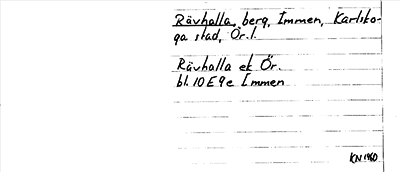 Rävhalla, berg, Immen, Karlsko-
ga stad, Ör. l.
Rävhalla ek Ör.
bl. 10E9e Immen
KN 1960